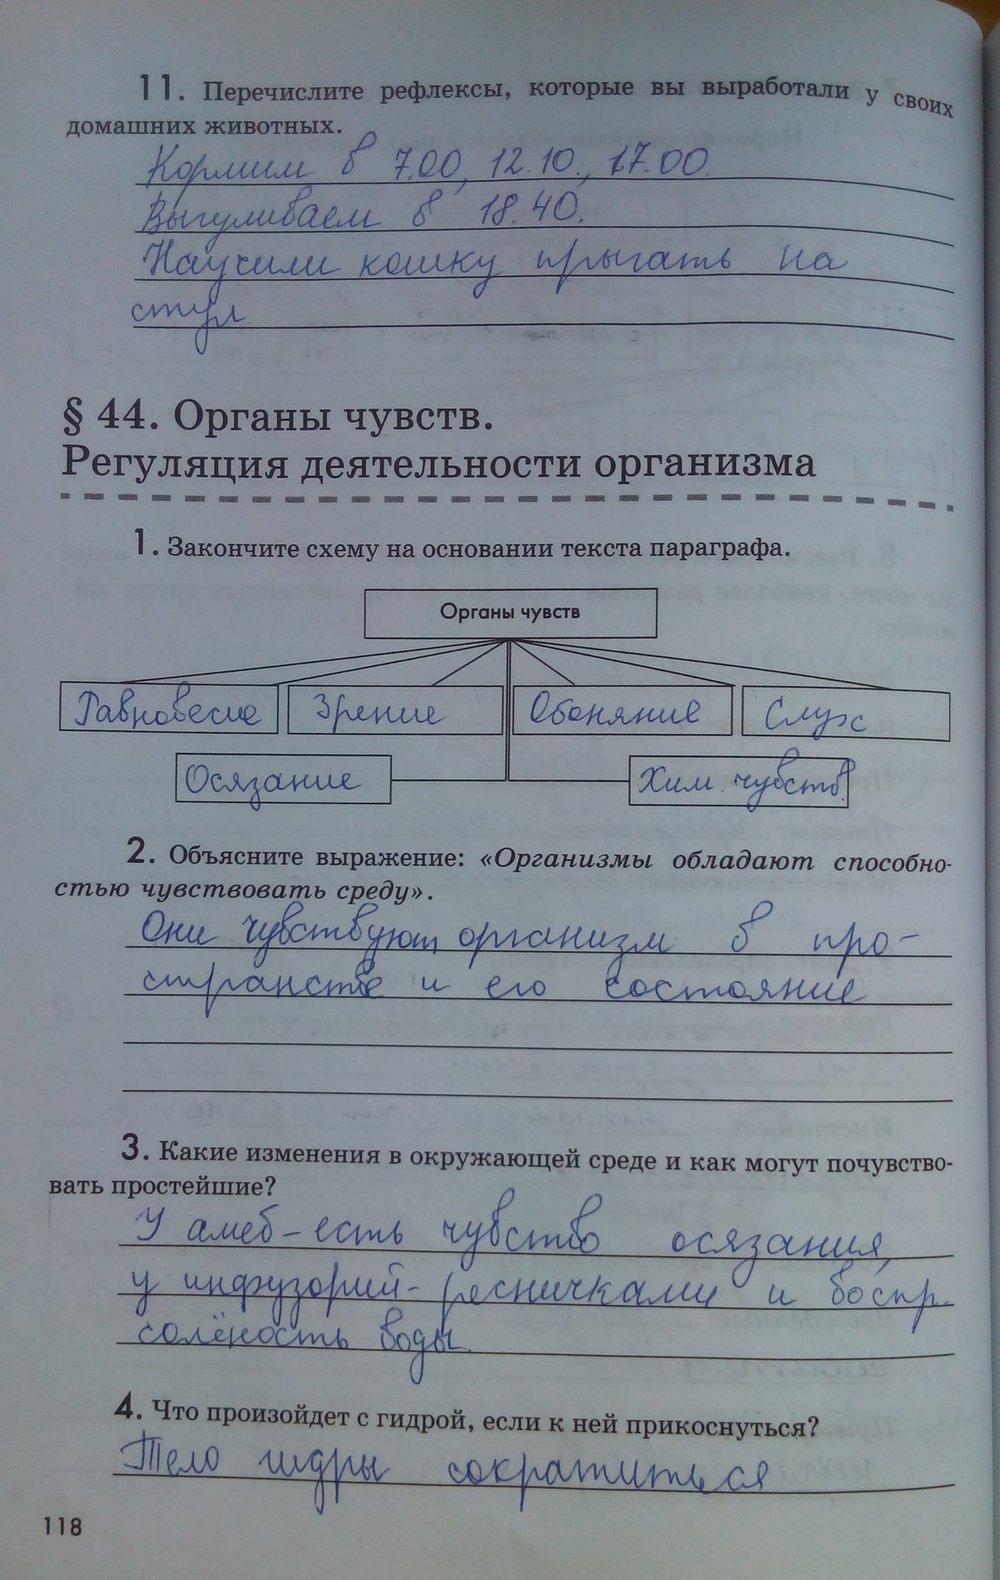 11. Перечислите рефлексы, которые вы выработали у своих
домашних животных.
Кормим в 7.00, 12.10., 17.00.
Выгуливаем в 18.40.
Научили кошку прыгать на
стул
§ 44. Органы чувств.
Регуляция деятельности организма
1. Закончите схему на основании текста параграфа.
Органы чувств
Равновесие Зрение Обоняние Слух
Осязание Хим. чувств.
2. Объясните выражение: «Организмы обладают способно-
стью чувствовать среду».
Они чувствуют организм в про-
странстве и его состояние
3. Какие изменения в окружающей среде и как могут почувство-
вать простейшие?
У амеб-есть чувство осязания,
у инфузорий-ресничками и воспр.
солёность воды.
4. Что произойдет с гидрой, если к ней прикоснуться?
Тело гидры сократиться
118